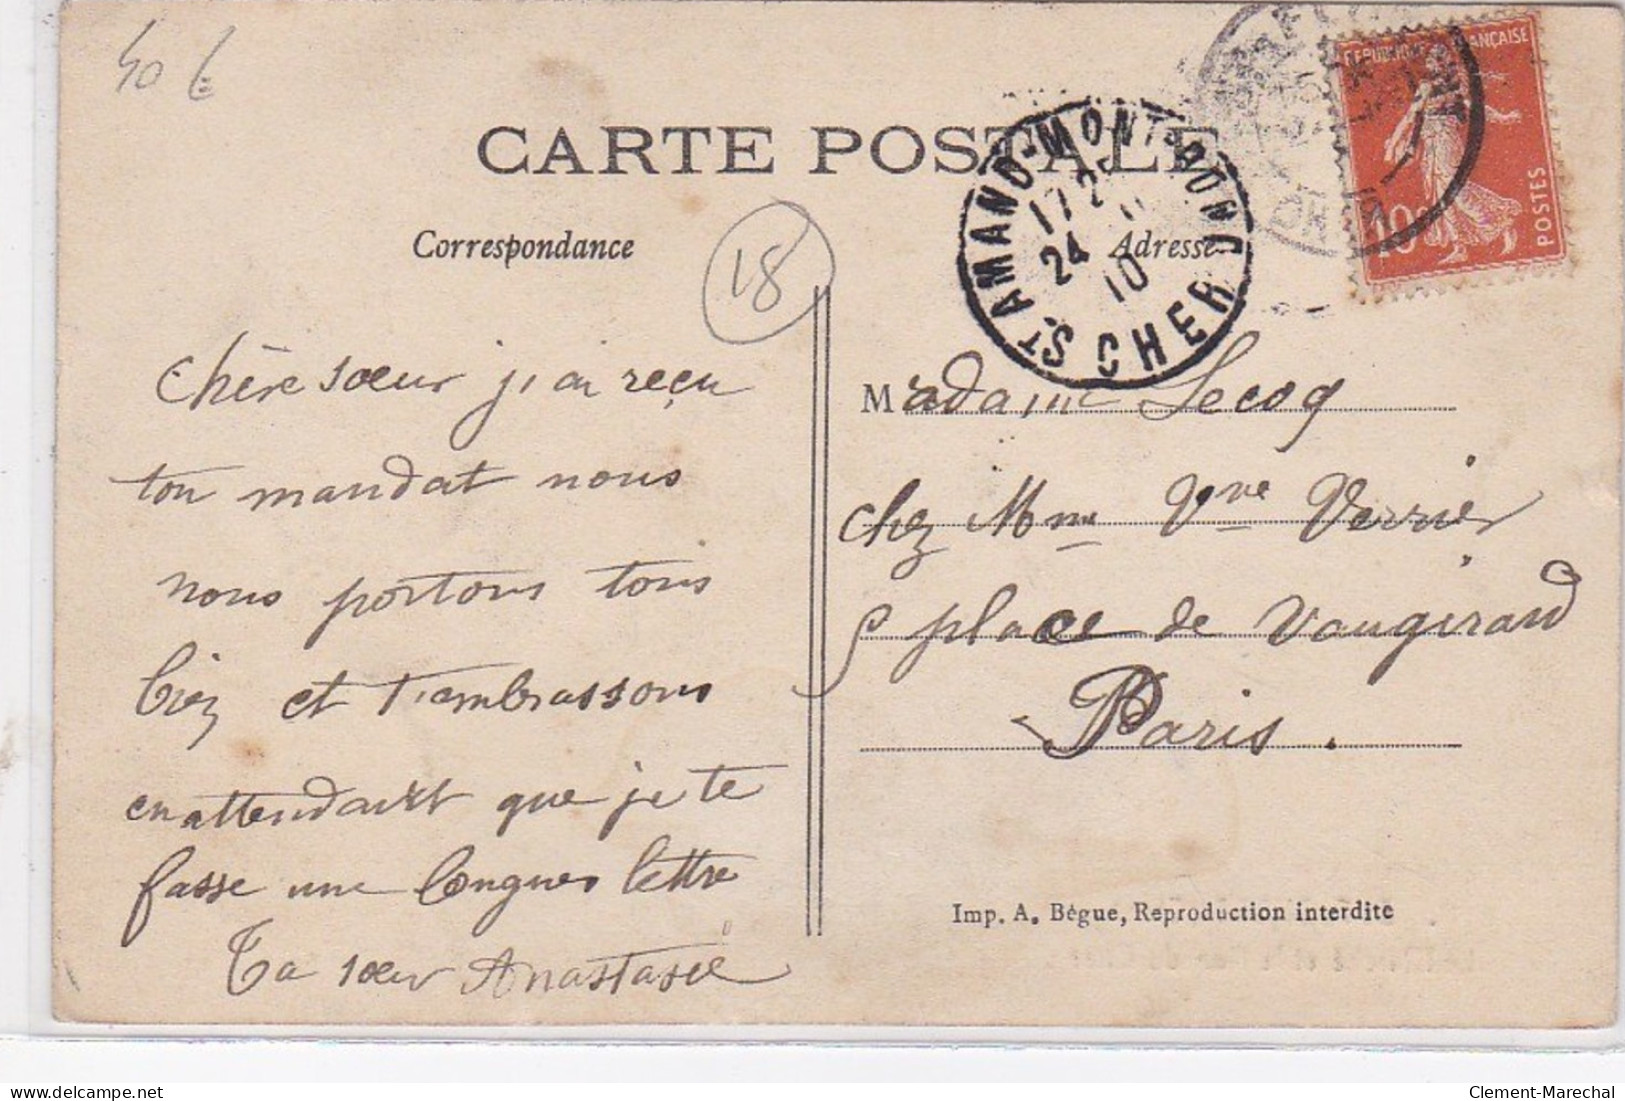 40 €
CARTE POSTALE
Correspondance
Adresse
18
ST AMAND-MONT-ROND
17 25
24 10
CHER
CHER
REPUBLIQUE FRANÇAISE
10
POSTES
Chère sœur j'ai reçu
ton mandat nous
nous portons tous
bien et t'embrassons
en attendant que je te
fasse une longues lettre
Ta sœur Anastasie
Madame Lecoq
chez Mme Vve Verrier
place de Vaugirard
Paris.
Imp. A. Bègue, Reproduction interdite
Clement-Marechal